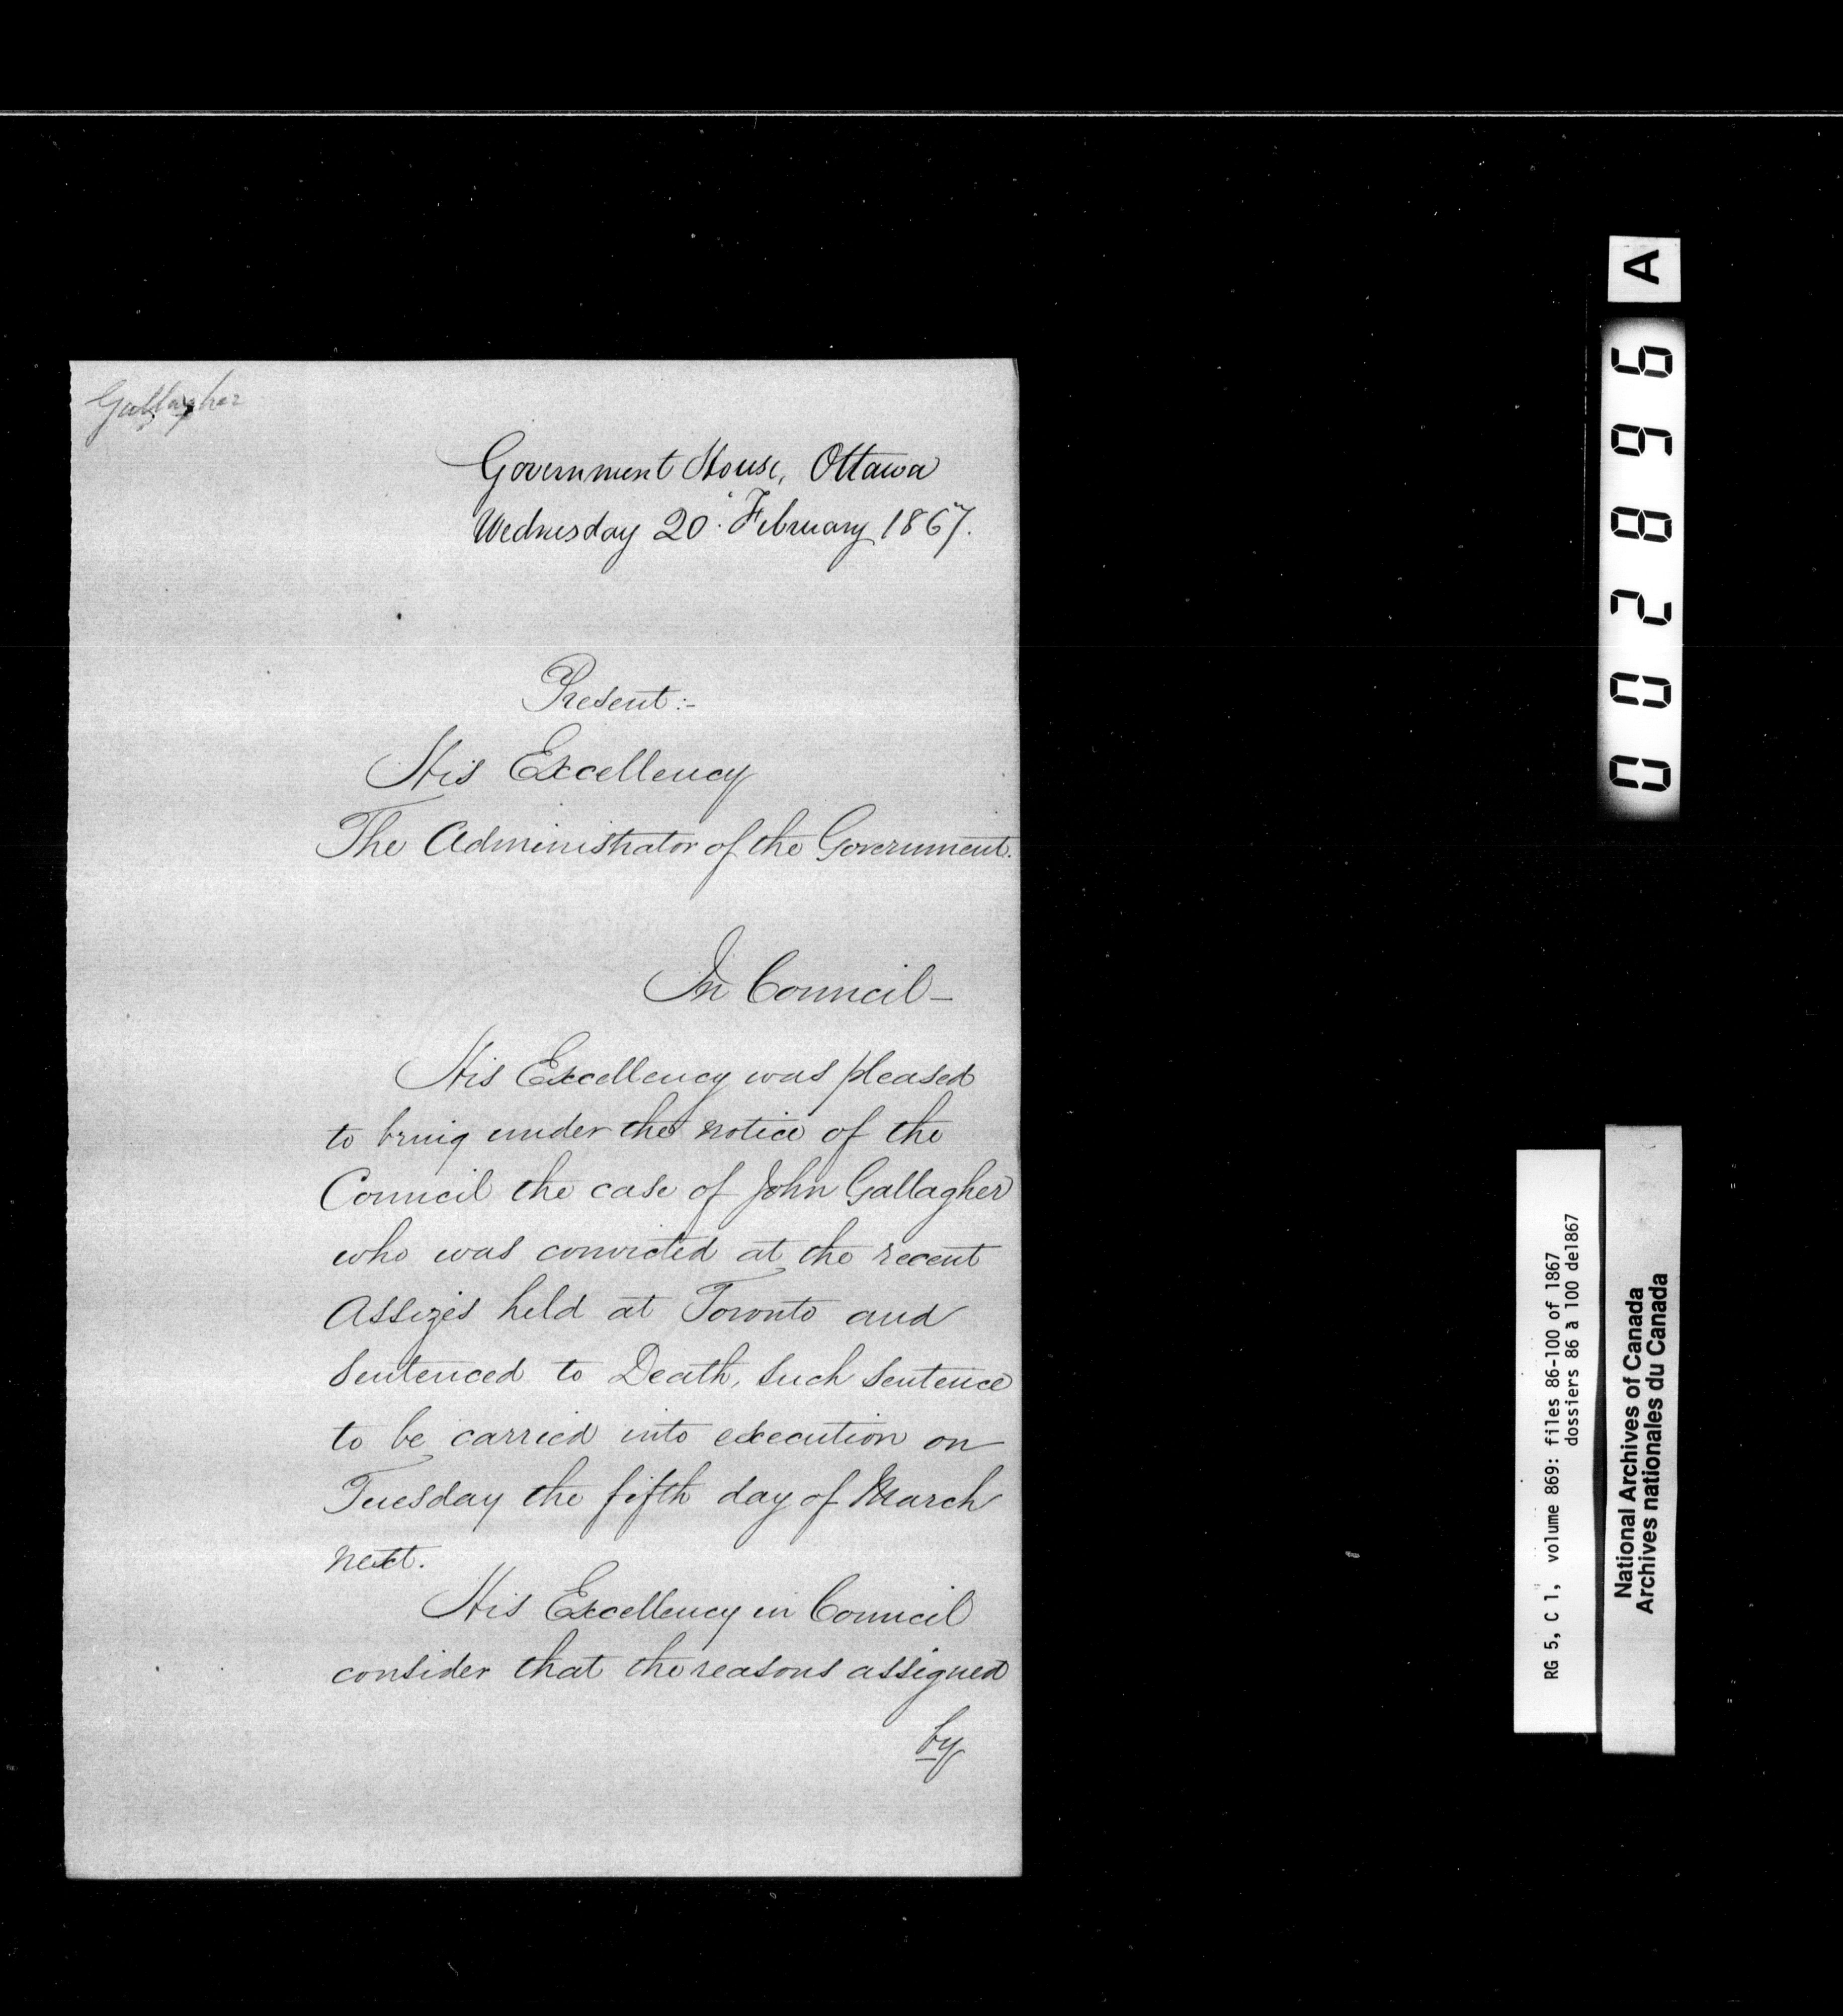 Gallagher
Government House, Ottawa
Wednesday 20th February 1867.
Present:-
His Excellency
The Administrator of the Government.
In Council-
His Excellency was pleased
to bring under the notice of the
Council the case of John Gallagher
who was convicted at the recent
Assizes held at Toronto and
sentenced to Death, such sentence
to be carried into execution on
Tuesday the fifth day of March
next.
His Excellency in Council
consider that the reasons assigned
by
002896 A
RG 5, C 1, volume 869: files 86-100 of 1867
dossiers 86 à 100 de1867
National Archives of Canada
Archives nationales du Canada